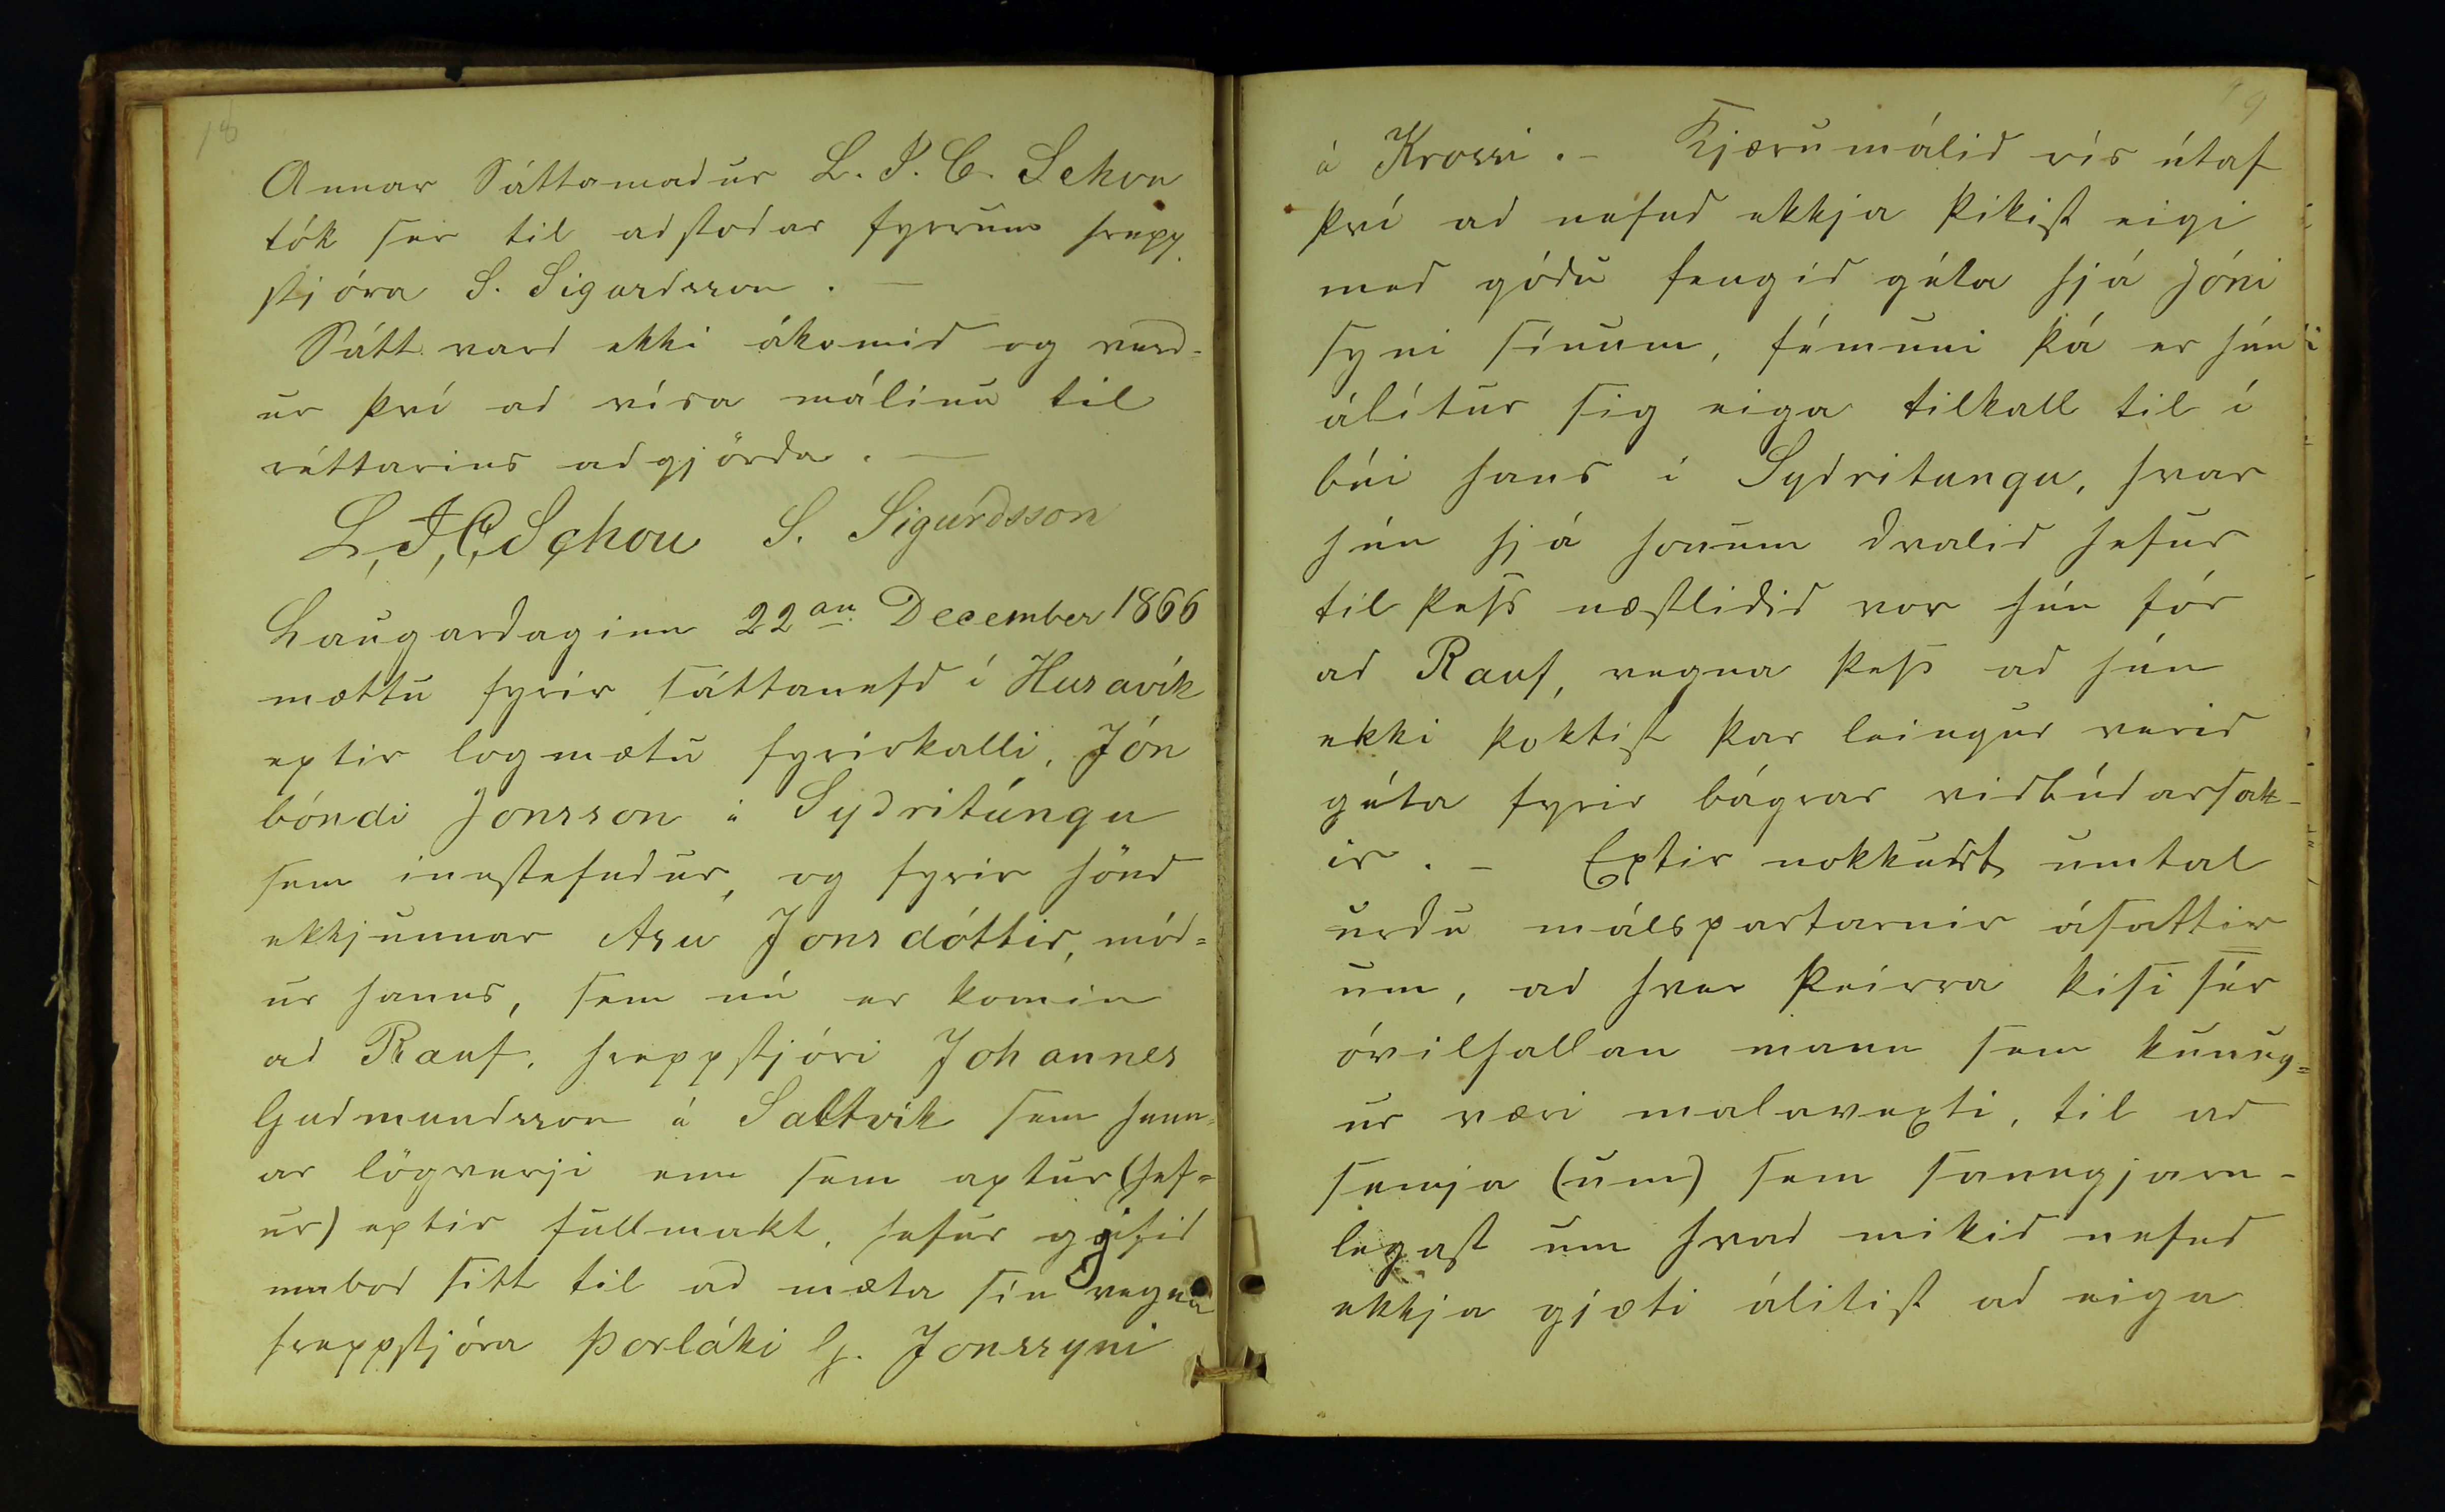 18
Annar Sáttamadur L. J. C. Schou
tók ser til adstodar fyrrum hrepp
stjóra S. Sigurdsson. —
Sátt vard ekki ákomid og verd=
ur því ad vísa málinu til
réttarins adgjörda. —
L, J, C, Schou S. Sigurdsson
Laugardaginn 22an December 1866
mættu fyrir sáttanefd í Husavík
eptir logmætu fyrirkalli, Jón
bóndi Jonsson á Sydritúngu
sem innstefndur, og fyrir hönd
ekkjunnar Asu Jonsdóttir, mód=
ur hanns, sem nú er komin
ad Rauf, hreppstjóri Johannes
Gudmundsson á Saltvík sem henn=
ar lögverji enn sem aptur (hef=
ur) eptir fullmakt, hefur gjefid
umbod sitt til ad mæta sín vegna
hreppstjóra Þorláki G. Jonssyni
19
á Krossi. – Kjærumálid rís útaf
því ad nefnd ekkja þikist eigi
med gódu fengid géta hjá Jóni
syni sínum, fémuni þá er hún
álítur sig eiga tilkall til í
búi hans á Sydritungu, hvar
hún hjá honum dvalid hefur
til þess næstlidid vor hún fór
ad Rauf, vegna þess ad hún
ekki þoktist þar leingur verid
géta fyrir bágrar vidbúdarsak-
ir. – Eptir nokkurt umtal
urdu málspartarnir ásattir
um, ad hver þeirra kisi sér
óvilhallan mann sem kunug=
ur væri malavexti, til ad
semja (um) sem sanngjarn-
legast um hvad mikid nefnd
ekkja gjæti álitist ad eiga